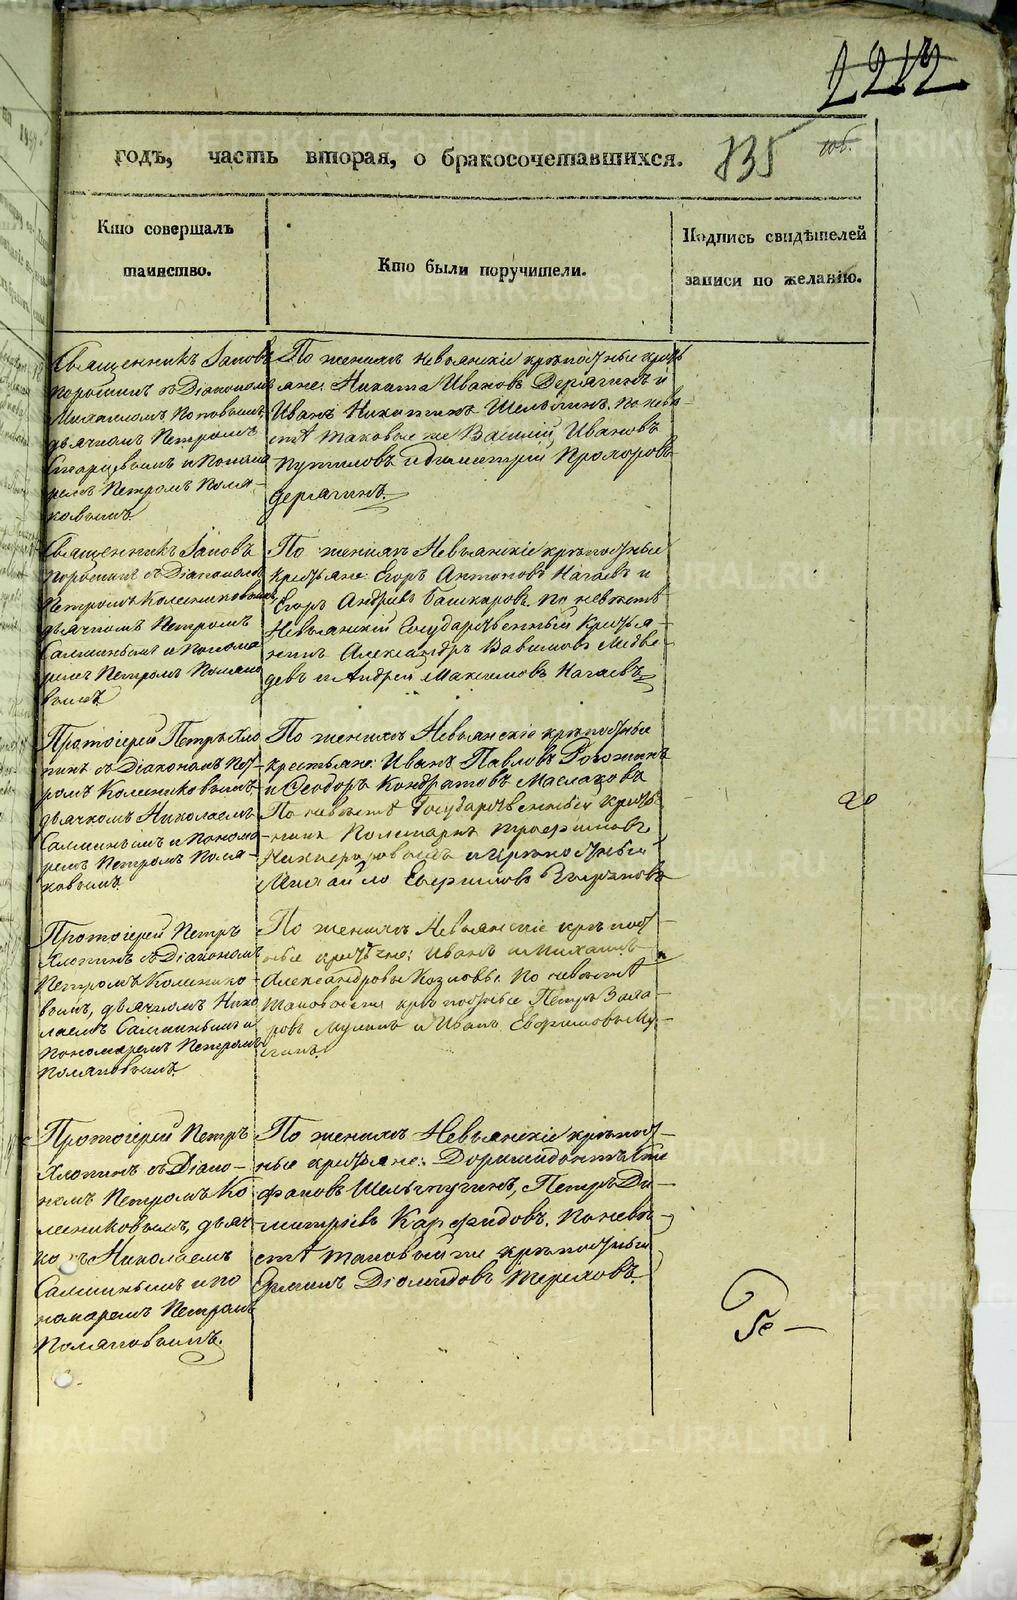 2212
годъ, часть вторая, о бракосочетавшихся.
135
Кто совершалъ
таинство.
Кто были поручители.
Подпись свидѣтелей
записи по желанію.
Священникъ Іаковъ
Порошинъ съ Діакономъ
Михаиломъ Поповымъ,
дьячкомъ Петромъ
и Понома
ремъ Петромъ Поля-
ковымъ.
По женихѣ Невьянскіе крѣпостные крест
яне: Никита Ивановъ Дерягинъ и
Иванъ Никитинъ По невѣ-
стѣ таковые же Василій Ивановъ
Путиловъ и Димитрій Прохоровъ
Дерягинъ.
Священникъ Іаковъ
Порошинъ съ Діакономъ
Петромъ Колесниковымъ,
дьячкомъ Петромъ
и Понома
ремъ Петромъ Поляко
вымъ
По женихѣ Невьянскіе крѣпостные
крестьяне: Егоръ Антоновъ Нагаевъ и
Егоръ Андреевъ Башкировъ. По невѣстѣ
Невьянскій Государственный Крестья-
нинъ Александръ Медвѣ-
девъ и Андрей Максимовъ Нагаевъ
Протоіерей Петръ Хло
пинъ съ Діакономъ Пет-
ромъ Колесниковымъ
дьячкомъ Николаемъ
и Понома
ремъ Петромъ Поля-
ковымъ
По женихѣ Невьянскіе крѣпостные
крестьяне: Иванъ Павловъ Рогожинъ
и Ѳеодоръ Кондратовъ Маслаковъ
По невѣстѣ Государственный кресть
-нинъ Трофимовъ
и крѣпостный
Михайло
Протоіерей Петръ
Хлопинъ съ Діакономъ
Петромъ Колеснико-
вымъ, дьячкомъ Нико
лаемъ и
Пономаремъ Петромъ
Поляковымъ.
По женихѣ Невьянскіе крѣпост-
ные крестьяне: Иванъ и Михаилъ
Александровы Козловы. По невѣстѣ
таковые же крѣпостные Петръ Заха
ровъ и Иванъ Ефимовы
Протоіерей Петръ
Хлопинъ съ Діако-
номъ Петромъ Ко
лесниковымъ, дьяч-
комъ Николаемъ
и по
номаремъ Петромъ
Поляковымъ.
По женихѣ Невьянскіе крѣпост-
ные крестьяне: Доримидонтъ Сте
фановъ Петръ Ди-
митріевъ Карфидовъ. По невѣ-
стѣ таковый же крѣпостный
Діомидовъ Тереховъ.
METRIKI.GASO-URAL.RU